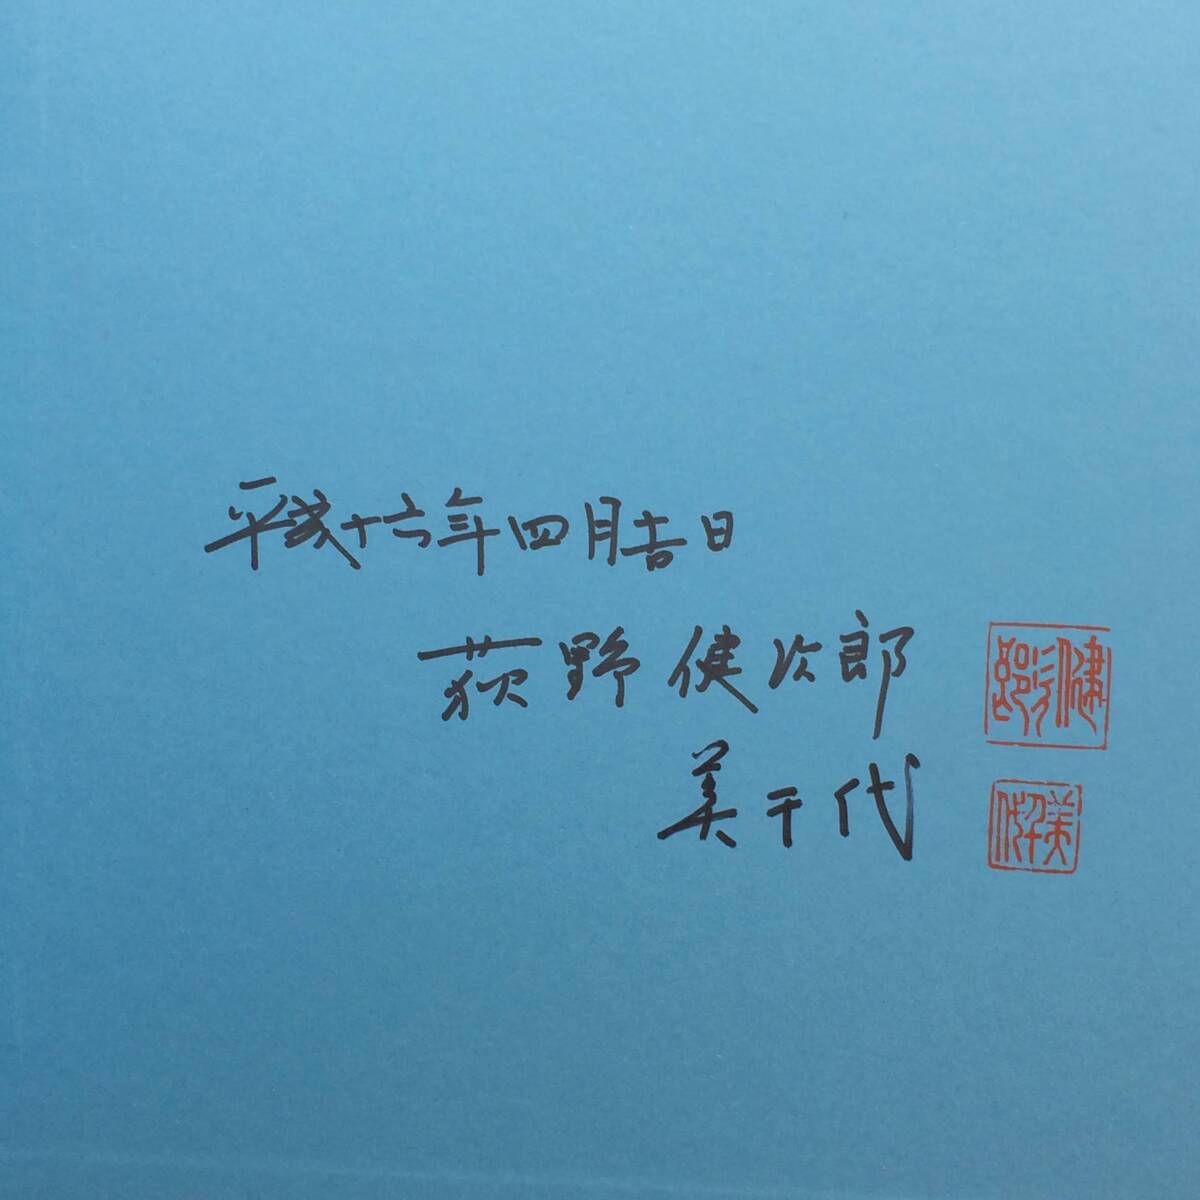 平成十六年四月吉日
荻野健次郎
美千代
健次郎
美千代